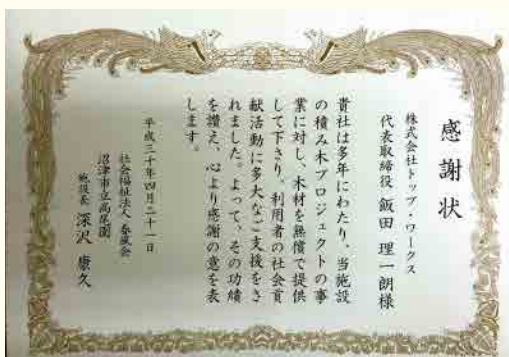 感謝状
株式会社トップ・ワークス
代表取締役 飯田 理一朗様
貴社は多年にわたり、当施設
の積み木プロジェクトの事
業に対し、木材を無償で提供
して下さり、利用者の社会貢
献活動に多大なご支援をさ
れました。よって、その功績
を讃え、心より感謝の意を表
します。
平成三十年四月二十一日
社会福祉法人 春風会
沼津市立高尾園
施設長 深沢 康久